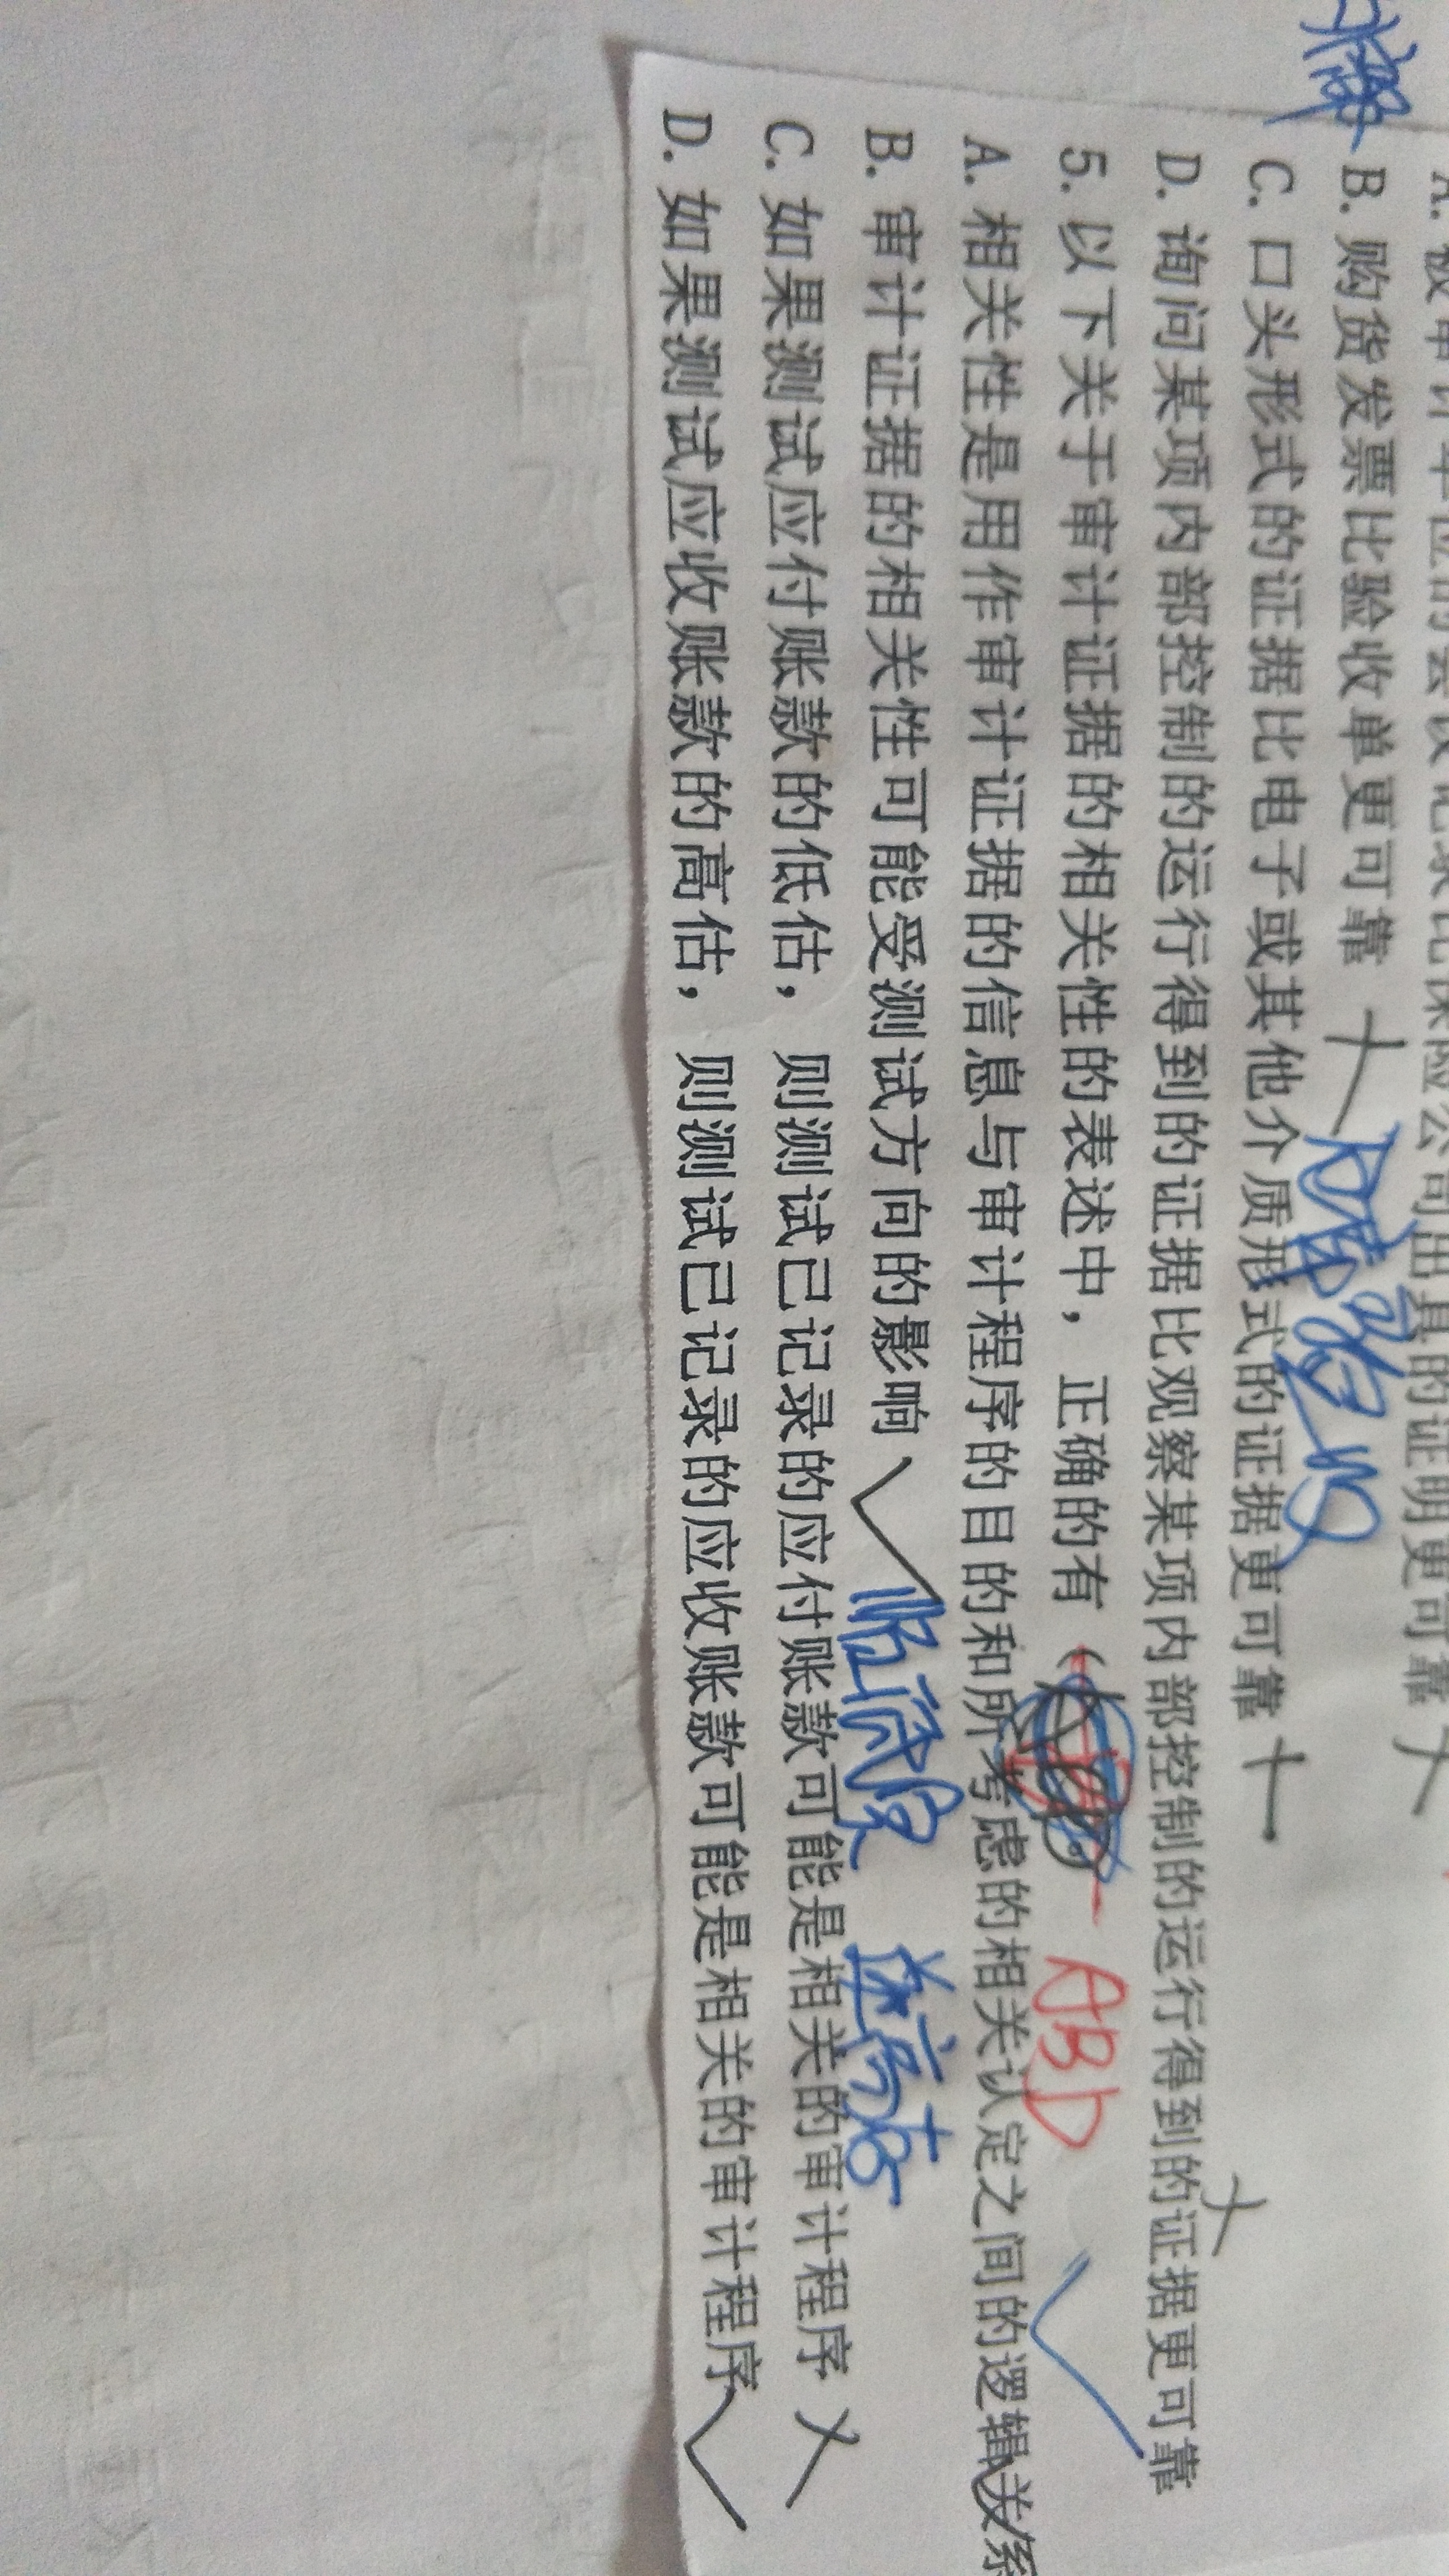 B. 购货发票比验收单更可靠
C. 口头形式的证据比电子或其他介质形式的证据更可靠
D. 询问某项内部控制的运行得到的证据比观察某项内部控制的运行得到的证据更可靠
5. 以下关于审计证据的相关性的表述中，正确的有（ ABD
A. 相关性是用作审计证据的信息与审计程序的目的和所考虑的相关认定之间的逻辑关系
B. 审计证据的相关性可能受测试方向的影响
C. 如果测试应付账款的低估，则测试已记录的应付账款可能是相关的审计程序
D. 如果测试应收账款的高估，则测试已记录的应收账款可能是相关的审计程序